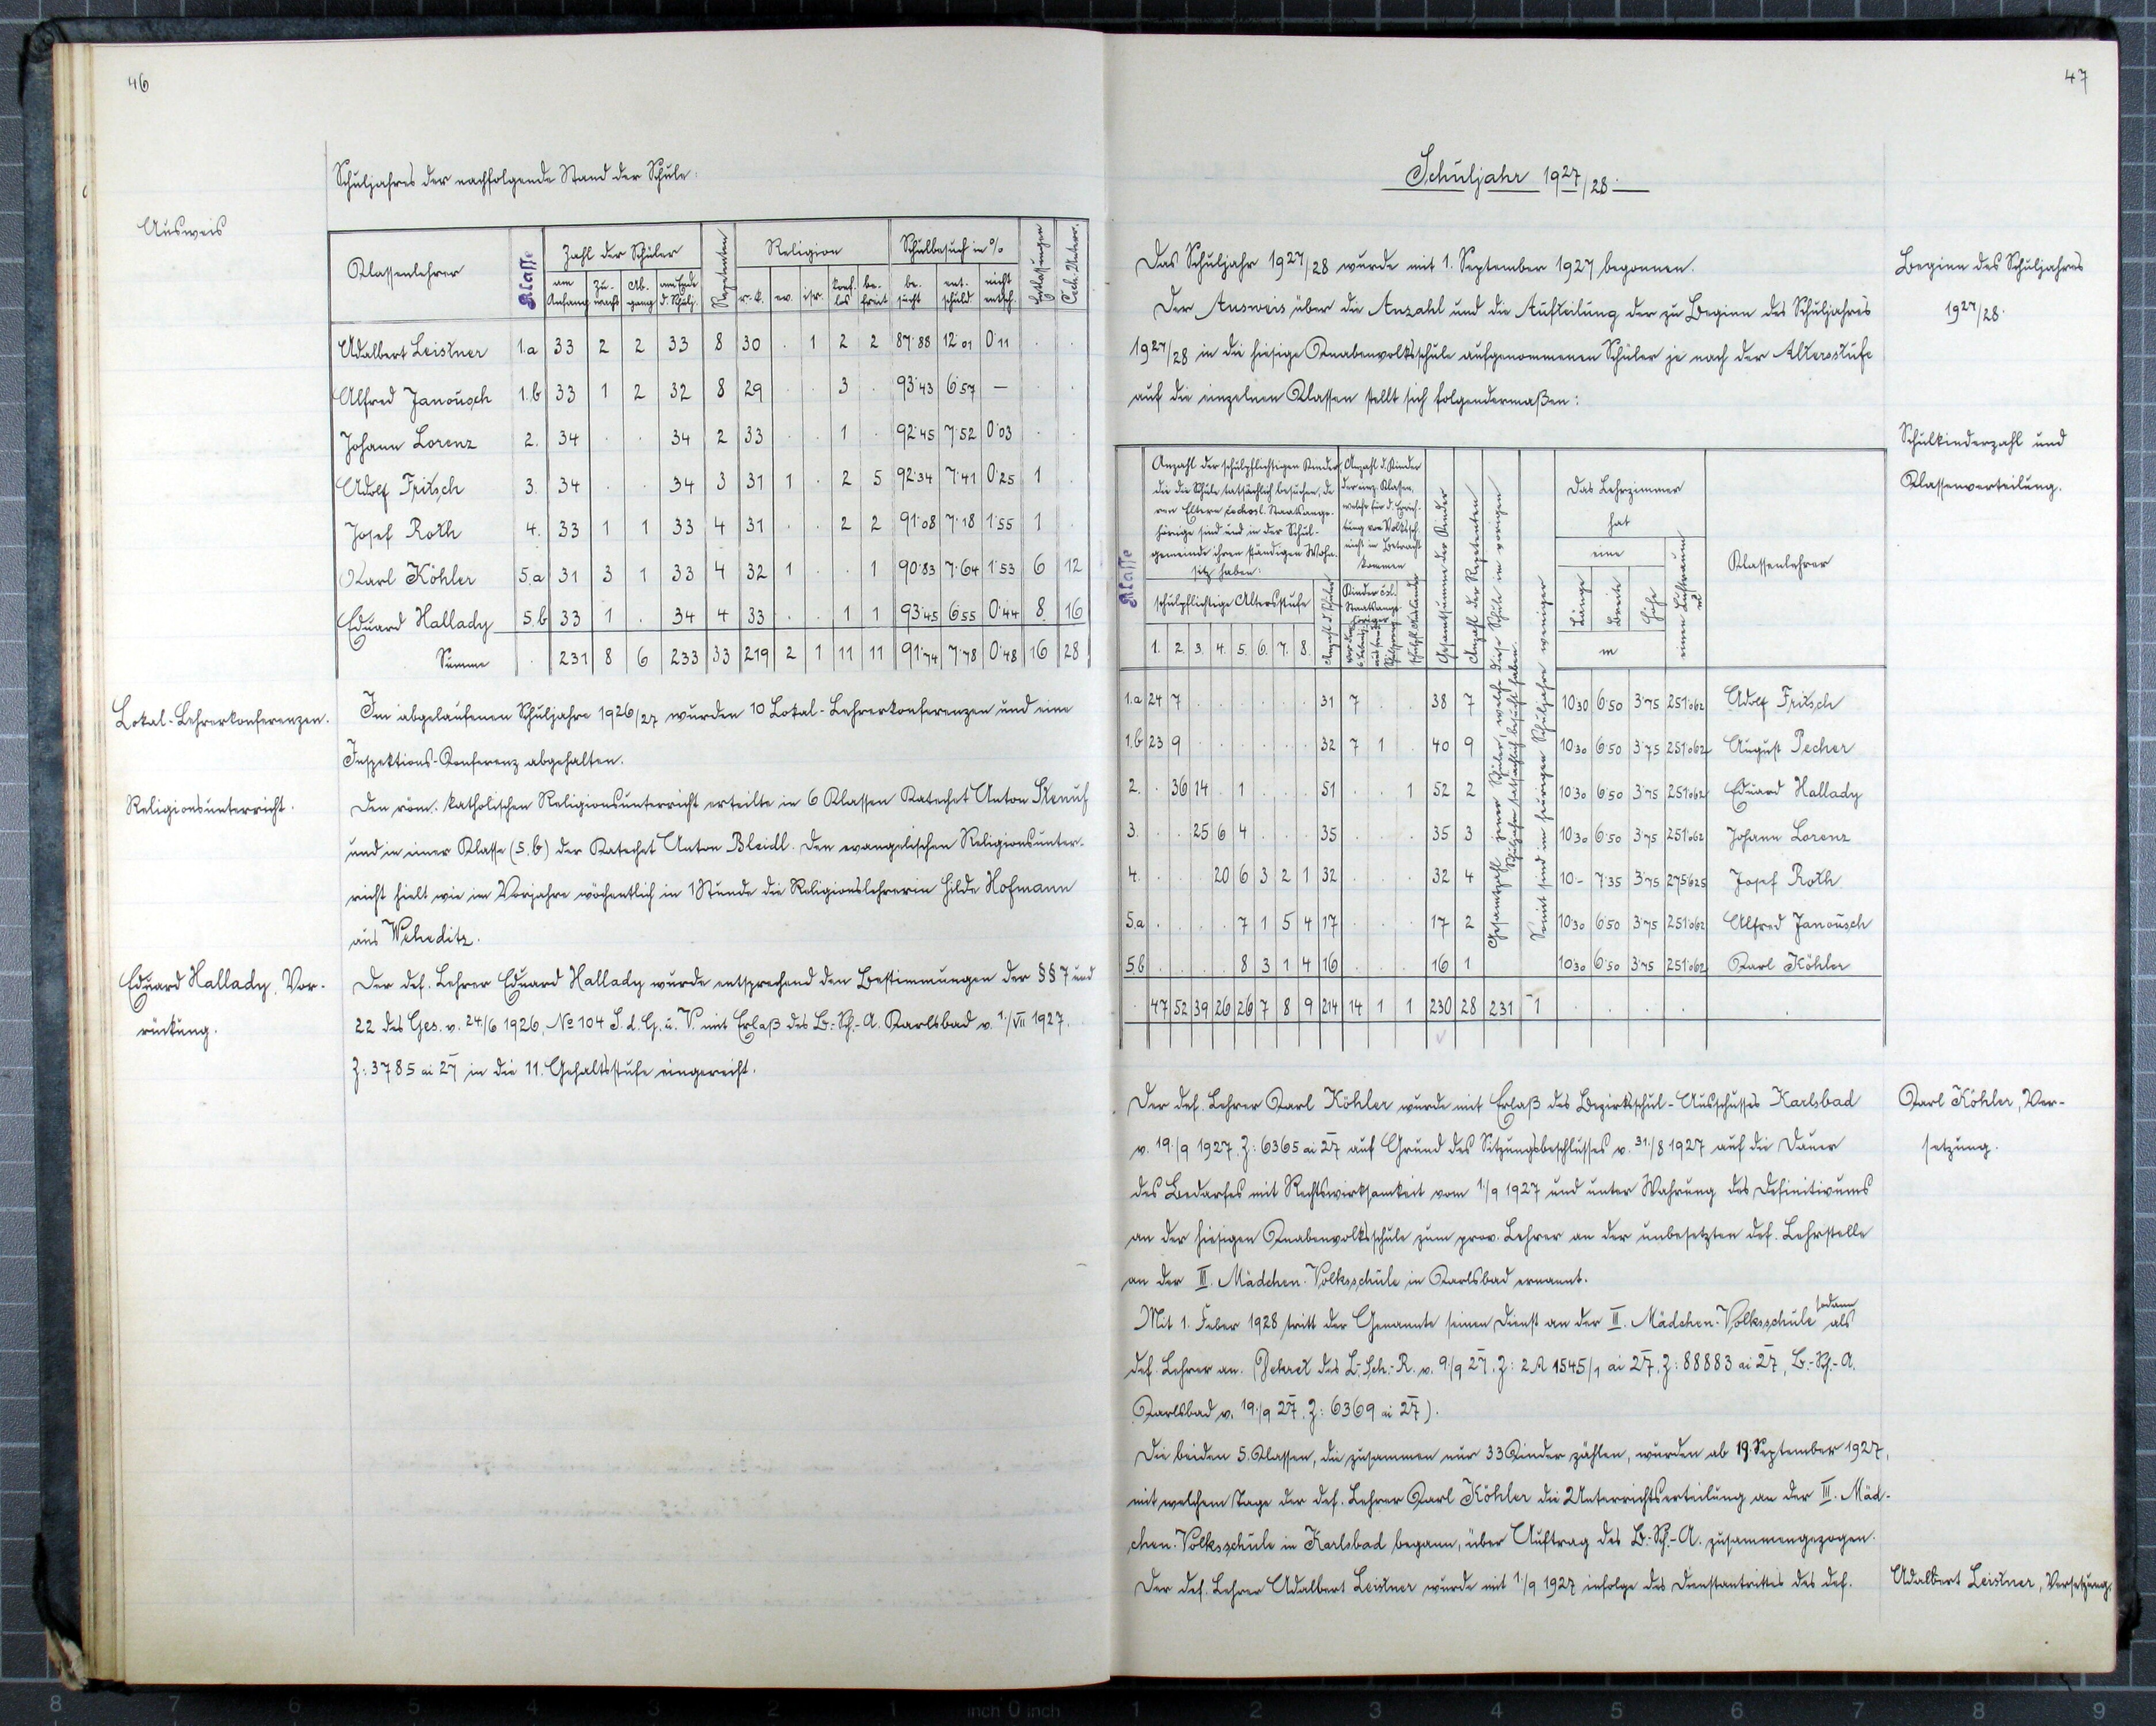 46
Schuljahres der nachfolgende Stand der Schule:
Ausweis
Klassenlehrer Klasse Zahl der Schüler Repetenten Religion Schulbesuch in % Entlassungen Čech. Unterr.
am Anfang zu- wachs Ab- gang am Ende d. Schulj. r.-k. ev. isr. konf. los be- freit be- sucht ent- schuld nicht entsch.
Adalbert Leistner 1.a 33 2 2 33 8 30 . 1 2 2 87·88 12·01 0·11 . .
Alfred Janousch 1.b 33 1 2 32 8 29 . . 3 . 93·43 6·57 — . .
Johann Lorenz 2. 34 . . 34 2 33 . . 1 . 92·45 7·52 0·03 . .
Adolf Fritsch 3. 34 . . 34 3 31 1 . 2 5 92·34 7·41 0·25 1 .
Josef Roth 4. 33 1 1 33 4 31 . . 2 2 91·08 7·18 1·55 1 .
Karl Köhler 5.a 31 3 1 33 4 32 1 . . 1 90·83 7·64 1·53 6 12
Eduard Hallady 5.b 33 1 . 34 4 33 . . 1 1 93·45 6·55 0·44 8. 16
Summe . 231 8 6 233 33 219 2 1 11 11 91·74 7·78 0·48 16 28
Lokal-Lehrerkonferenzen.
Im abgelaufenen Schuljahre 1926/27 wurden 10 Lokal-Lehrerkonferenzen und eine
Inspektions-Konferenz abgehalten.
Religionsunterricht.
Den röm. katholischen Religionsunterricht erteilte in 6 Klassen Katechet Anton
und in einer Klasse (5.b) der Katechet Anton Bleidl. Den evangelischen Religionsunter-
richt hielt wie im Vorjahre wöchentlich in 1 Stunde die Religionslehrerin Hilde Hofmann
aus Weheditz.
Eduard Hallady, Vor-
rückung.
Der def. Lehrer Eduard Hallady wurde entsprechend den Bestimmungen der §§ 7 und
22 des Ges. v. 24/6 1926, No 104 S. d. G. u. V. mit Erlaß des B.-Sch.-A. Karlsbad v. 1./VII 1927.
Z: 3785 ai 27 in die 11. Gehaltsstufe eingereiht.
47
Schuljahr 1927/28.
Das Schuljahr 1927/28 wurde mit 1. September 1927 begonnen.
Beginn des Schuljahres
1927/28.
Der Ausweis über die Anzahl und die Aufteilung der zu Beginn des Schuljahres
1927/28 in die hiesige Knabenvolksschule aufgenommenen Schüler je nach der Altersstufe
auf die einzelnen Klassen stellt sich folgendermaßen:
Schulkinderzahl und
Klassenverteilung.
Klasse
Anzahl der schulpflichtigen Kinder,
die die Schule tatsächlich besuchen, de
ren Eltern čechosl. Staatsange-
hörige sind und in der Schul-
gemeinde ihren ständigen Wohn-
sitz haben:
schulpflichtige Altersstufe
1. 2. 3. 4. 5. 6. 7. 8.
Anzahl d. Kinder
der einz. Klassen,
welche für d. Errich-
tung von Volkssch.
nicht in Betracht
kommen
Gesamtsumme der Kinder
Anzahl der Repetenten
Gesamtzahl jener Schüler, welche diese Schule im vorigen
Schuljahre tatsächlich besucht haben.
Somit sind im heurigen Schuljahre weniger
Das Lehrzimmer
hat
eine
Länge Breite Höhe
m
einen Luftraum
Klassenlehrer
1.a 24 7 . . . . . . 31 7 . . 38 7 10·30 6·50 3·75 251·062 Adolf Fritsch
1.b 23 9 . . . . . . 32 7 1 . 40 9 10·30 6·50 3·75 251·062 August Pecher
2. . 36 14 . 1 . . . 51 . . 1 52 2 10·30 6·50 3·75 251·062 Eduard Hallady
3. . . 25 6 4 . . . 35 . . . 35 3 10·30 6·50 3·75 251·062 Johann Lorenz
4. . . . 20 6 3 2 1 32 . . . 32 4 10·- 7·35 3·75 275·625 Josef Roth
5.a . . . . 7 1 5 4 17 . . . 17 2 10·30 6·50 3·75 251·062 Alfred Janousch
5.b . . . . 8 3 1 4 16 . . . 16 1 10·30 6·50 3·75 251·062 Karl Köhler
. 47 52 39 26 26 7 8 9 214 14 1 1 230 28 231 -1 . . . . .
Der def. Lehrer Karl Köhler wurde mit Erlaß des Bezirksschul-Ausschusses Karlsbad
Karl Köhler, Ver-
setzung.
v. 19./9 1927. Z: 6365 ai 27 auf Grund des Sitzungsbeschlusses v. 31./8 1927 auf die Dauer
des Bedarfes mit Rechtswirksamkeit vom 1./9 1927 und unter Wahrung des Definitivums
an der hiesigen Knabenvolksschule zum prov. Lehrer an der unbesetzten def. Lehrstelle
an der III. Mädchen-Volksschule in Karlsbad ernannt.
Mit 1. Feber 1928 tritt der Genannte seinen Dienst an der III. Mädchen-Volksschule sodann als
def. Lehrer an. (Dekret des L.-Sch.-R. v. 9./9 27. Z: 2 A 1545/1 ai 27, Z: 88883 ai 27, B.-Sch.-A.
Karlsbad v. 19./9 27. Z: 6369 ai 27).
Die beiden 5. Klassen, die zusammen nur 33 Kinder zählen, wurden ab 19. September 1927,
mit welchem Tage der def. Lehrer Karl Köhler die Unterrichtserteilung an der III. Mäd-
chen-Volksschule in Karlsbad begann, über Auftrag des B.-Sch.-A. zusammengezogen.
Der def. Lehrer Adalbert Leistner wurde mit 1./9 1927 infolge des Dienstantrittes des def.
Adalbert Leistner, Versetzung.
8 7 6 5 4 3 2 1 inch 0 inch 1 2 3 4 5 6 7 8 9